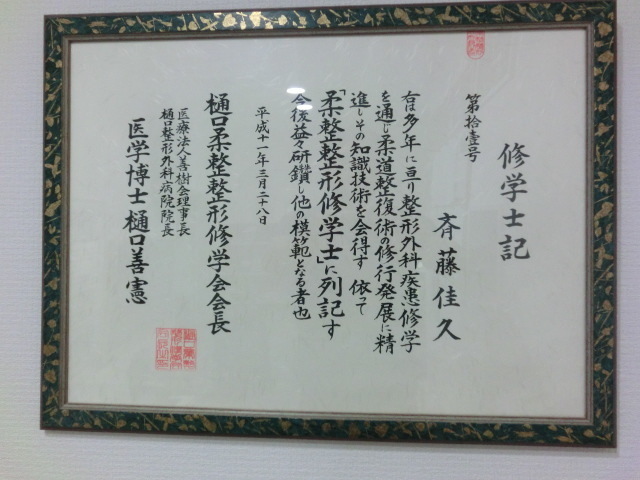 修学士記
第拾壹号
斉藤佳久
右は多年に亘り整形外科疾患修学
を通じ柔道整復術の修行発展に精
進しその知識技術を会得す 依って
「柔整整形修学士」に列記す
今後益々研鑽し他の模範となる者也
平成十一年三月二十八日
樋口柔整整形修学会会長
医療法人善樹会理事長
樋口整形外科病院院長
医学博士樋口善憲